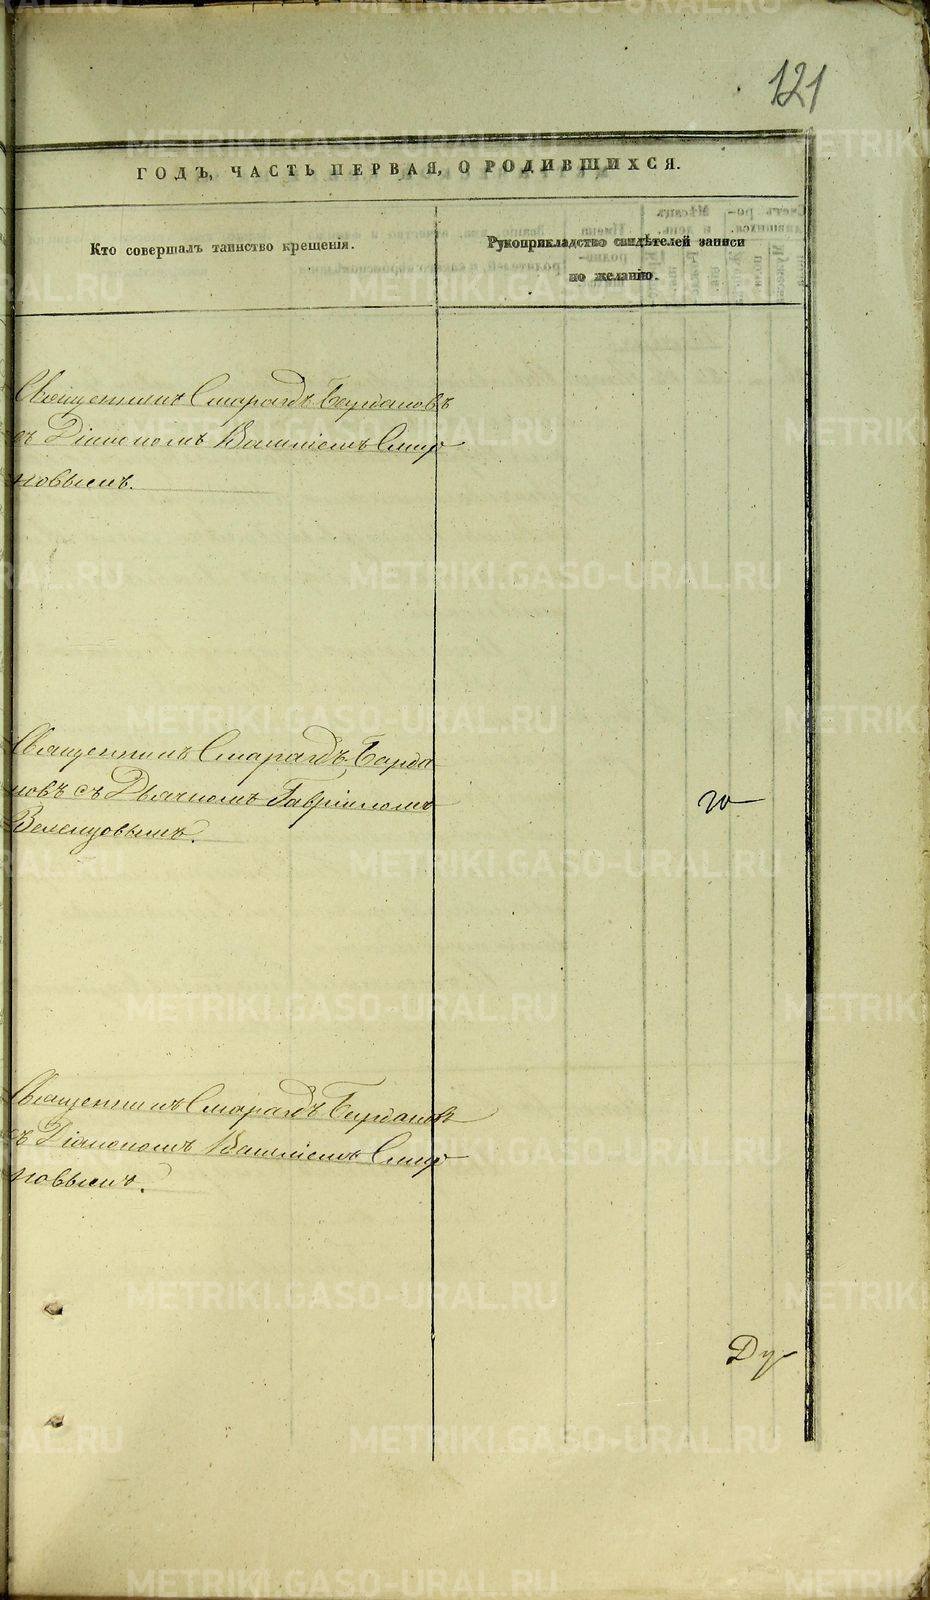 121
ГОДЪ, ЧАСТЬ ПЕРВАЯ, О РОДИВШИХСЯ.
Кто совершалъ таинство крещенія.
Рукоприкладство свидѣтелей записи
по желанію.
Священникъ Смарагдъ Бурдановъ
съ Діакономъ Василіемъ Смир
новымъ.
Священникъ Смарагдъ Бурда
новъ съ Дьячкомъ Гавріиломъ
Зеленцовымъ.
Священникъ Смарагдъ Бурдановъ
съ Діакономъ Василіемъ Смир
новымъ.
Ду
METRIKI.GASO-URAL.RU